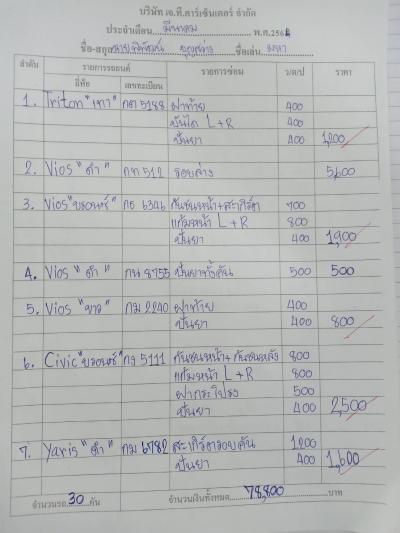 บริษัท เจ.ที.คาร์เซ็นเตอร์ จำกัด
ประจำเดือน มีนาคม พ.ศ.256
ชื่อ-สกุล ชื่อเล่น
ลำดับ รายการรถยนต์ รายการซ่อม ว/ด/ป ราคา
ยี่ห้อ เลขทะเบียน
1. Triton "เทา" กต 5188 ฝาท้าย 400
บันได L+R 400
ปั่นยา 400 1,200
2. Vios "ดำ" กท 512 รอบล่าง 5,600
3. Vios "บรอนซ์" กธ 6346 กันชนหน้า+สะเกิร์ต 700
แก้มหน้า L+R 800
ปั่นยา 400 1,900
4. Vios "ดำ" กน 8755 ปั่นยาทั้งคัน 500 500
5. Vios "ขาว" กม 2240 ฝาท้าย 400
ปั่นยา 400 800
6. Civic "บรอนซ์" กง 5111 กันชนหน้า+กันชนหลัง 800
แก้มหน้า L+R 800
ฝากระโปรง 500
ปั่นยา 400 2,500
7. Yaris "ดำ" กม 6782 สะเกิร์ตรอบคัน 1,200
ปั่นยา 400 1,600
จำนวนรถ 30 คัน จำนวนเงินทั้งหมด 78,800 บาท